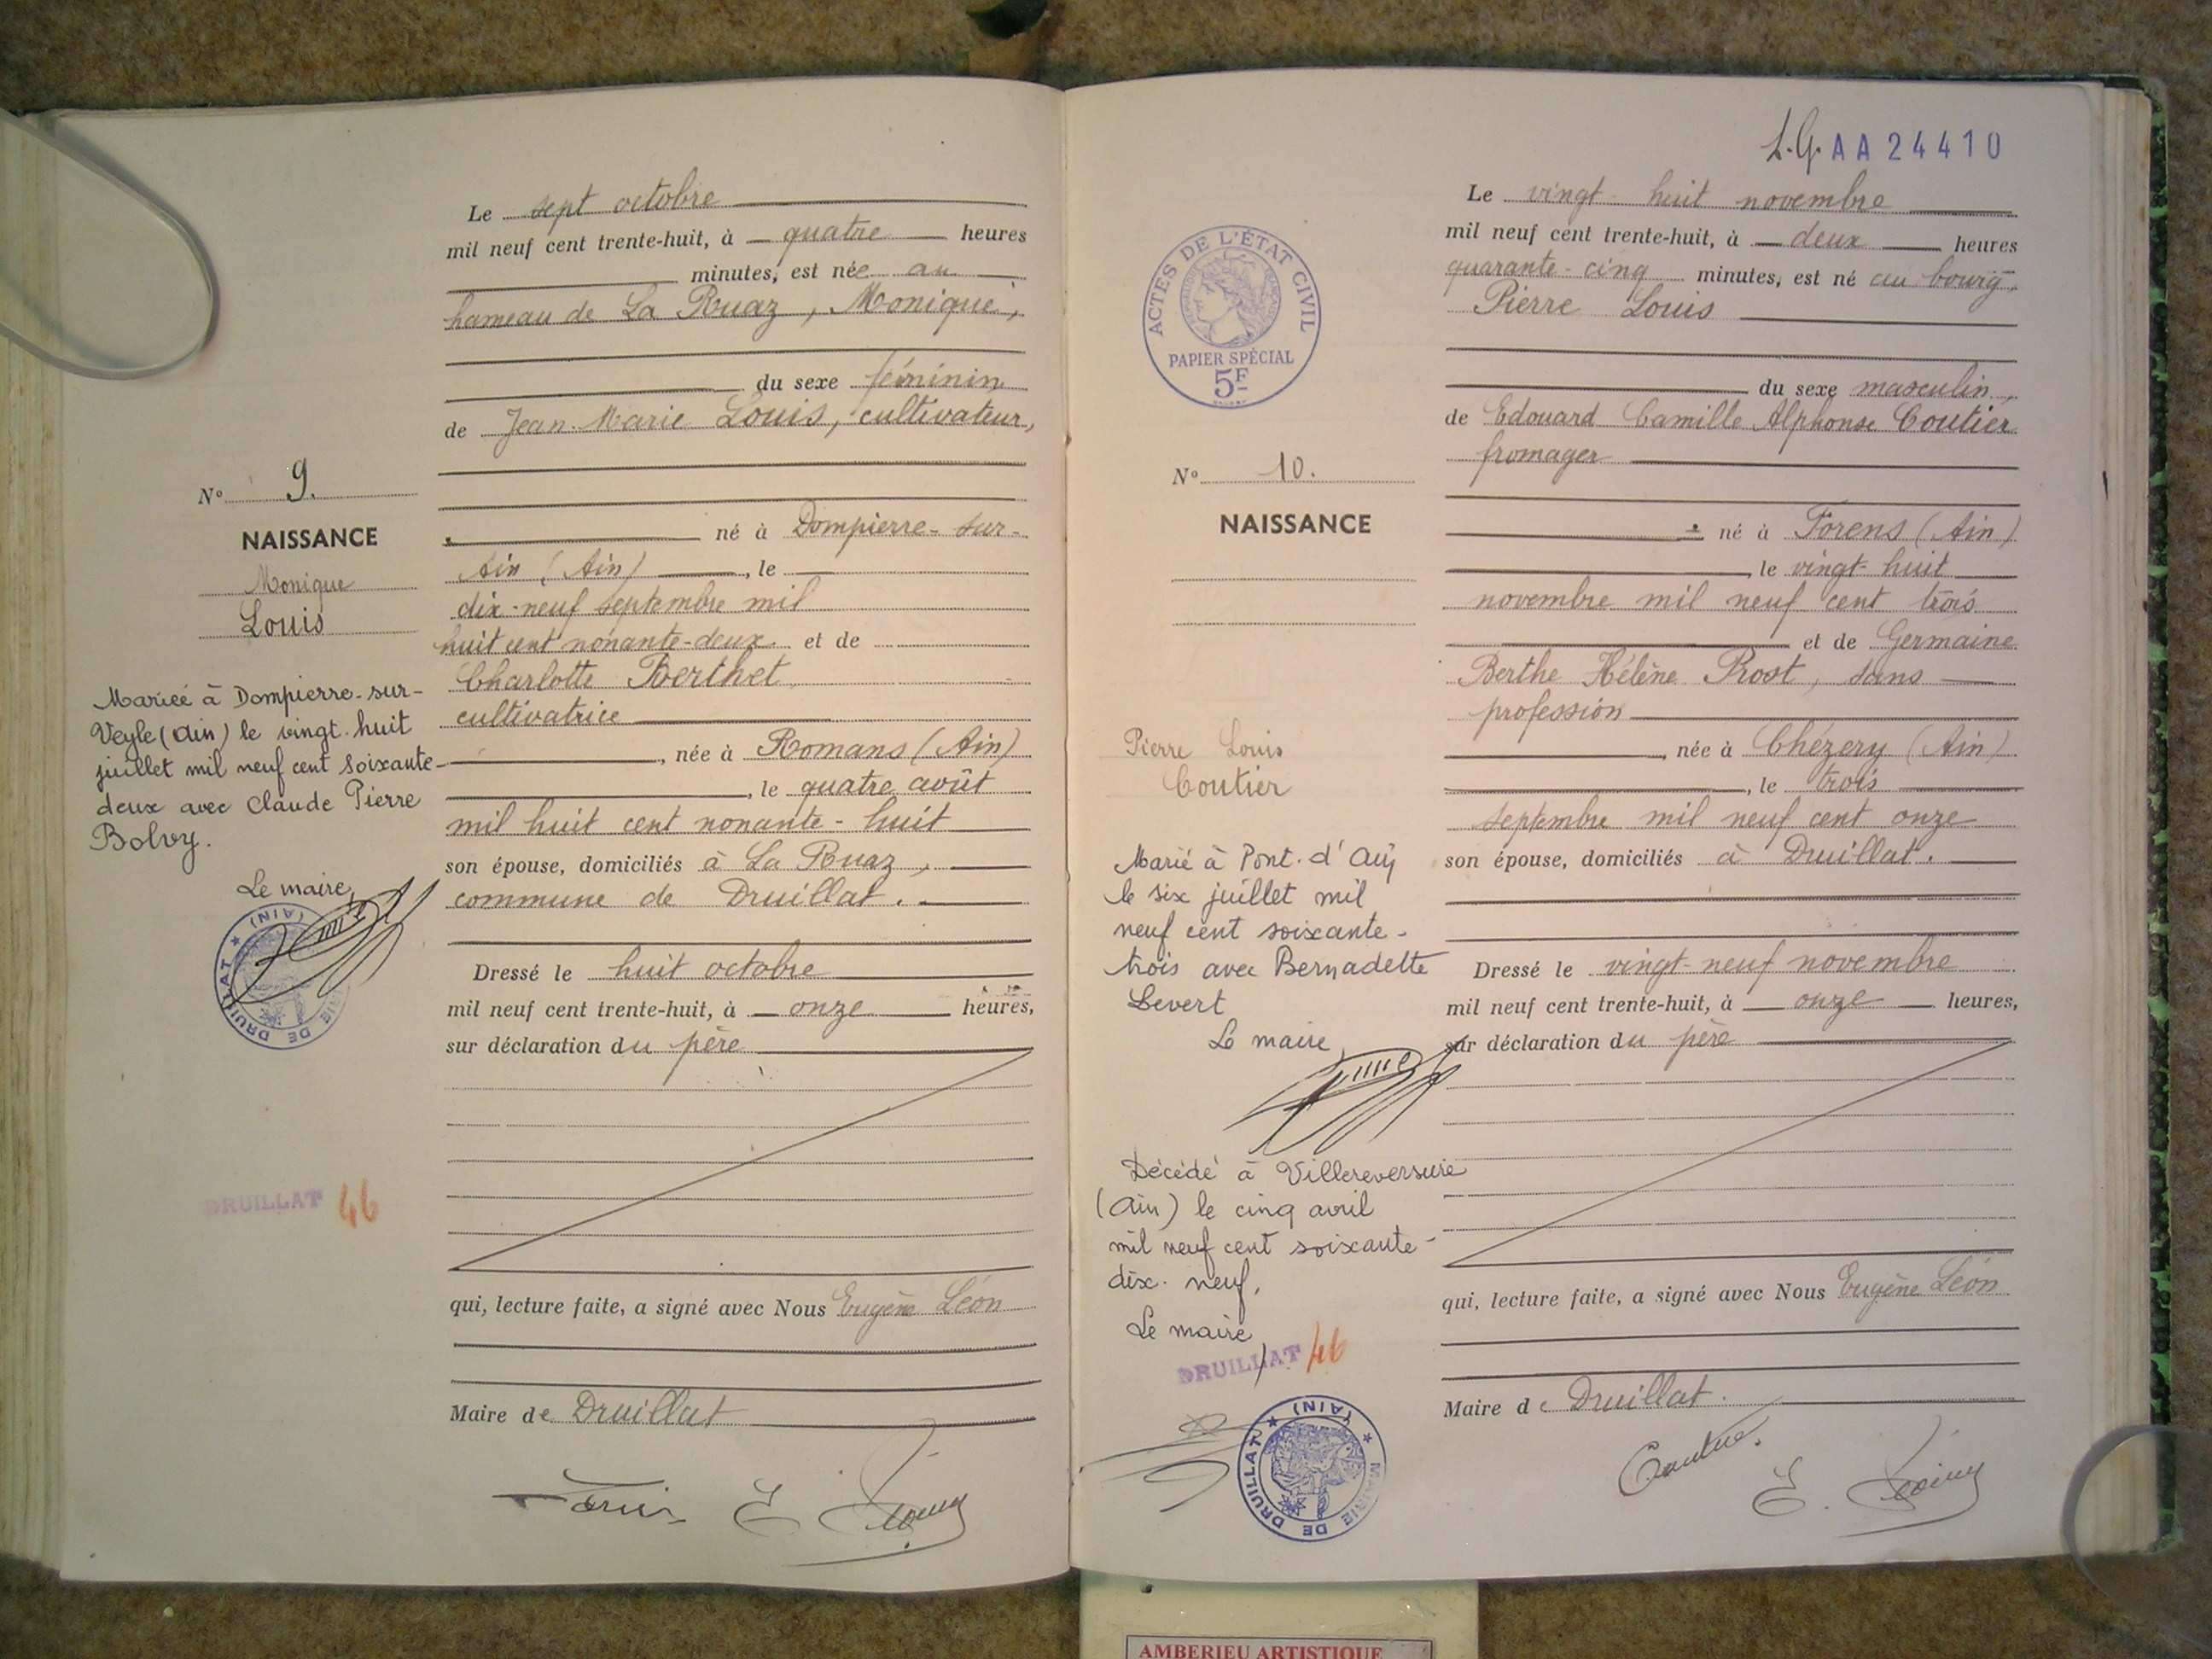 Le sept octobre
mil neuf cent trente-huit, à quatre heures
minutes, est née au
hameau de La Ruaz, Monique,
du sexe féminin
de Jean-Marie Louis, cultivateur,
né à Dompierre-sur-
Ain (Ain), le
dix-neuf septembre mil
huit cent nonante-deux et de
Charlotte Berthet
cultivatrice
, née à Romans (Ain)
, le quatre août
mil huit cent nonante-huit
son épouse, domiciliés à La Ruaz,
commune de Druillat.
Dressé le huit octobre
mil neuf cent trente-huit, à onze heures,
sur déclaration du père
qui, lecture faite, a signé avec Nous Eugène Léon
Maire de Druillat
Louis E
No 9.
NAISSANCE
Monique
Louis
Mariée à Dompierre-sur-
Veyle (Ain) le vingt-huit
juillet mil neuf cent soixante-
deux avec Claude Pierre
Bolvy.
Le maire,
MAIRIE DE DRUILLAT * (AIN)
DRUILLAT 46
L.G. AA 24410
Le vingt-huit novembre
mil neuf cent trente-huit, à deux heures
quarante-cinq minutes, est né au bourg,
Pierre Louis
du sexe masculin,
de Edouard Camille Alphonse Coutier
fromager
né à Forens (Ain)
, le vingt-huit
novembre mil neuf cent trois
et de Germaine
Berthe Hélène Prost, sans
profession
, née à Chézery (Ain)
, le trois
septembre mil neuf cent onze
son épouse, domiciliés à Druillat.
Dressé le vingt-neuf novembre
mil neuf cent trente-huit, à onze heures,
sur déclaration du père
qui, lecture faite, a signé avec Nous Eugène Léon
Maire de Druillat.
Coutier. E.
ACTES DE L'ÉTAT CIVIL
PAPIER SPÉCIAL
5F
No 10.
NAISSANCE
Pierre Louis
Coutier
Marié à Pont-d'Ain
le six juillet mil
neuf cent soixante-
trois avec Bernadette
Levert
Le maire,
Décédé à Villereversure
(Ain) le cinq avril
mil neuf cent soixante-
dix-neuf.
Le maire,
DRUILLAT 46
MAIRIE DE DRUILLAT * (AIN) *
AMBERIEU ARTISTIQUE